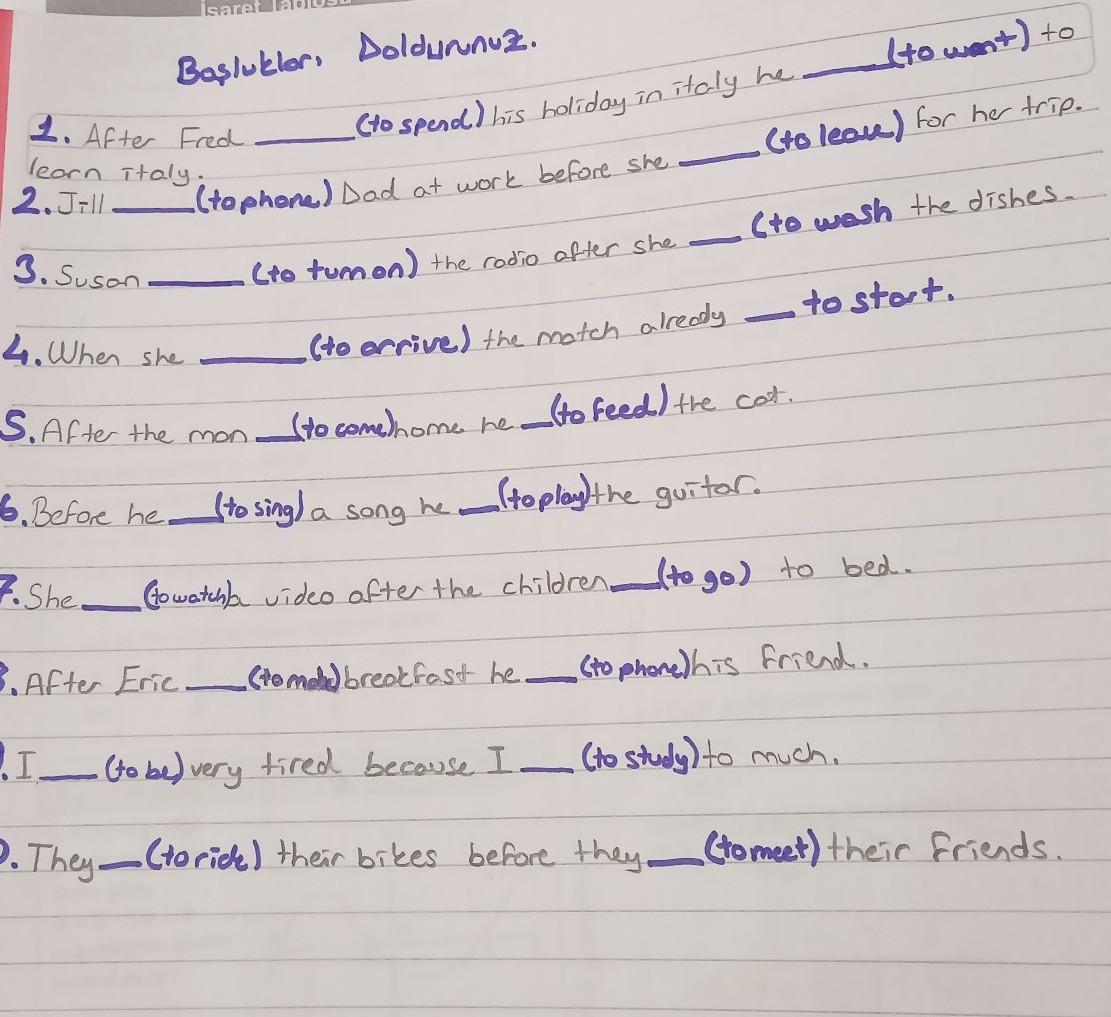 İşaret Tablosu
Boşluklar, Doldurunuz.
1. After Fred ____ (to spend) his holiday in italy he ____ (to want) to
learn italy.
2. Jill ____ (to phone) Dad at work before she ____ (to leave) for her trip.
3. Susan ____ (to turn on) the radio after she ____ (to wash the dishes.
4. When she ____ (to arrive) the match already ____ to start.
5. After the man ____ (to come) home he ____ (to feed) the cat.
6. Before he ____ (to sing) a song he ____ (to play) the guitar.
7. She ____ (to watch) a video after the children ____ (to go) to bed.
. After Eric ____ (to make) breakfast he ____ (to phone) his friend.
. I ____ (to be) very tired because I ____ (to study) to much.
. They ____ (to ride) their bikes before they ____ (to meet) their friends.